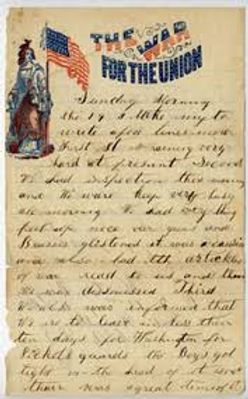 THE WAR
FOR THE UNION
Sunday Morning
the 19 I take my to
write a few lines more
first It is raining very
hard at present Second
We had inspection this morning
and We were keep very busy
all morning We had every thing
fixt up nice our guns and
it was a
was also had the articles
of war read to us and then
We was dismissed Third
We was informed that
We is to leave in less than
ten days for Washington for
guards the Boys got
tight in the head of it
their was a great time of it